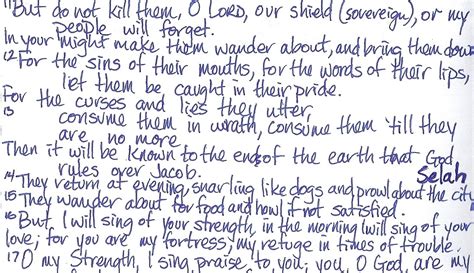 11 But do not kill them, O LORD, our shield (sovereign), or my
people will forget.
In your might make them wander about, and bring them down
12 For the sins of their mouths, for the words of their lips,
let them be caught in their pride.
For the curses and lies they utter,
13 consume them in wrath, consume them 'till they
are no more
Then it will be known to the ends of the earth that God
rules over Jacob. Selah
14 They return at evening, snarling like dogs and prowl about the city
15 They wander about for food and howl if not satisfied.
16 But I will sing of your strength, in the morning I will sing of your
love; for you are my fortress, my refuge in times of trouble.
17 O my Strength, I sing praise to you; you, O God, are my